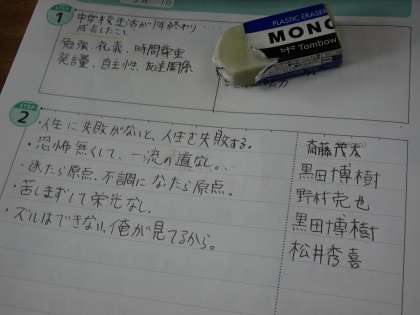 STEP 1
中学校生活が1年終わり
成長したこと
勉強、礼義、時間尊重
発言量、自主性、友達関係
PLASTIC ERASER
MONO
Tombow
STEP 2
・人生に失敗がないと、人生を失敗する。 斎藤茂太
・恐怖無くして、一流の道なし。 黒田博樹
・迷たら原点、不調になたら原点。 野村克也
・苦しまずして栄光なし。 黒田博樹
・ズルはできない、俺が見てるから。 松井秀喜